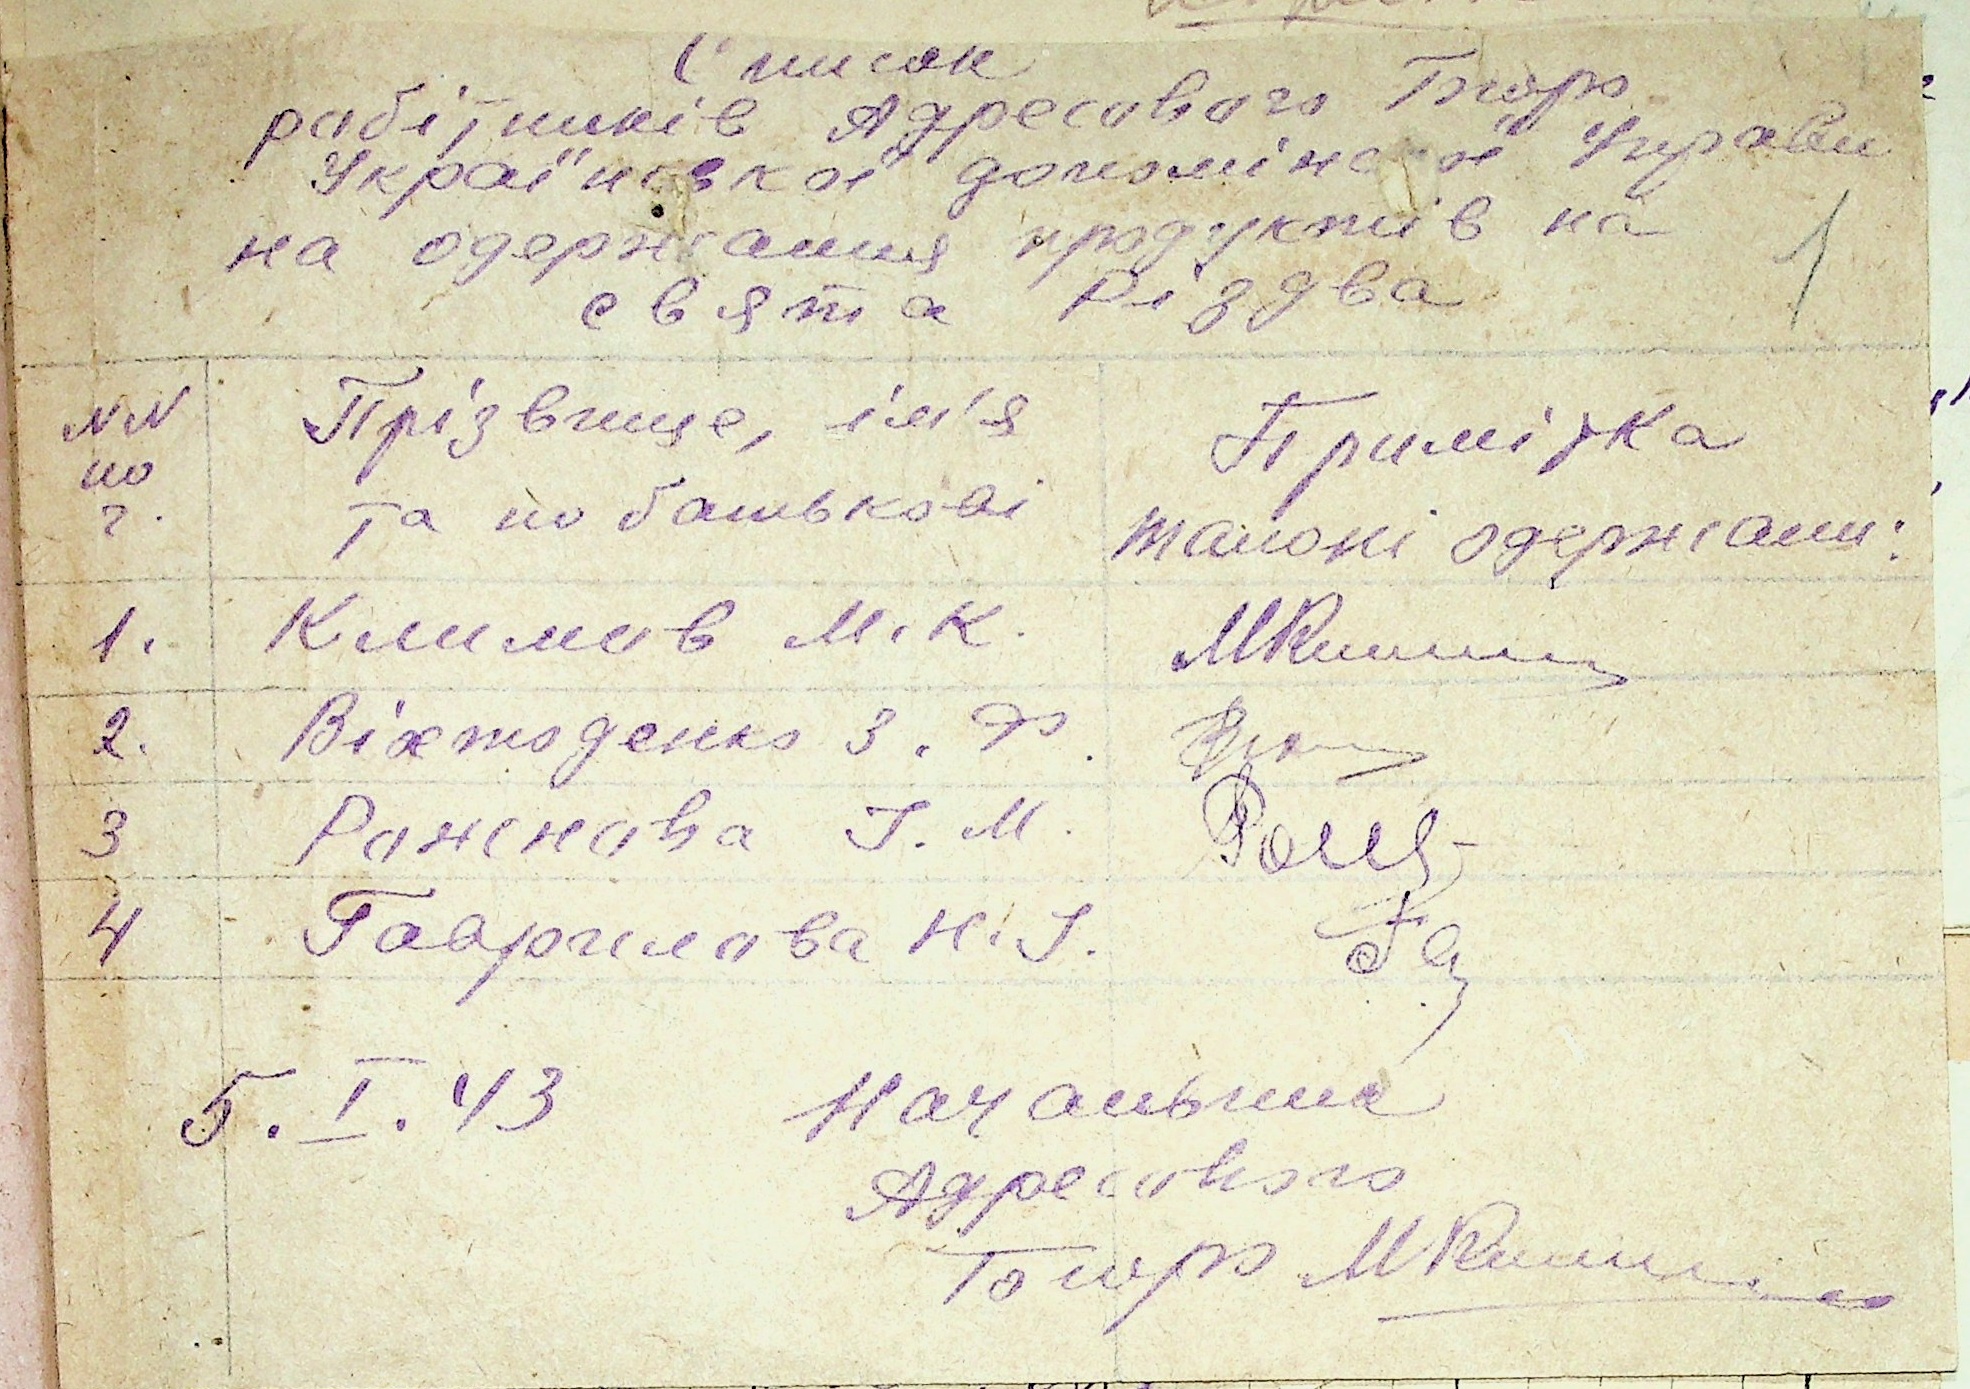 Список
робітників Адресового Бюро
Української допоміжної Управи
на одержання продуктів на
свята Різдва
NN
по
ч.
Прізвище, ім'я
та по батькові
Примітка
талоні одержали:
1. Климов М. К. МКлим
2. Віхтоденко З. Ф.
3 Рожнова І. М.
4 Гаврилова Н. І.
5. I. 43
Начальник
Адресового
Бюро МКлим